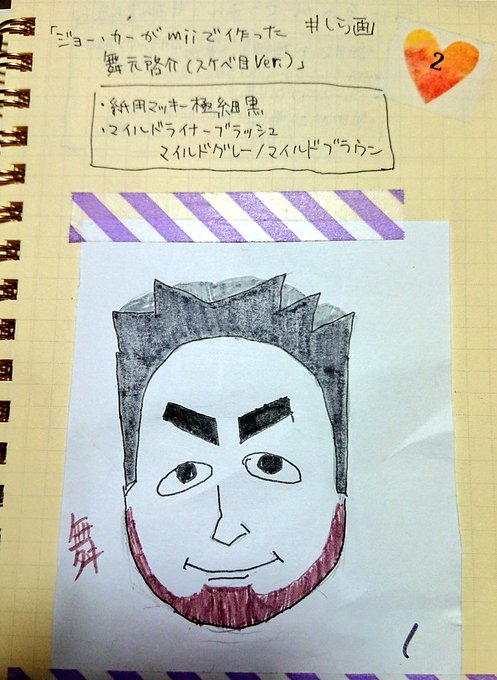 「ジョー・カーがmiiで作った #しら画
舞元啓介(スケベ目ver.)」
2
・紙用マッキー極細黒
・マイルドライナーブラッシュ
マイルドグレー/マイルドブラウン
舞